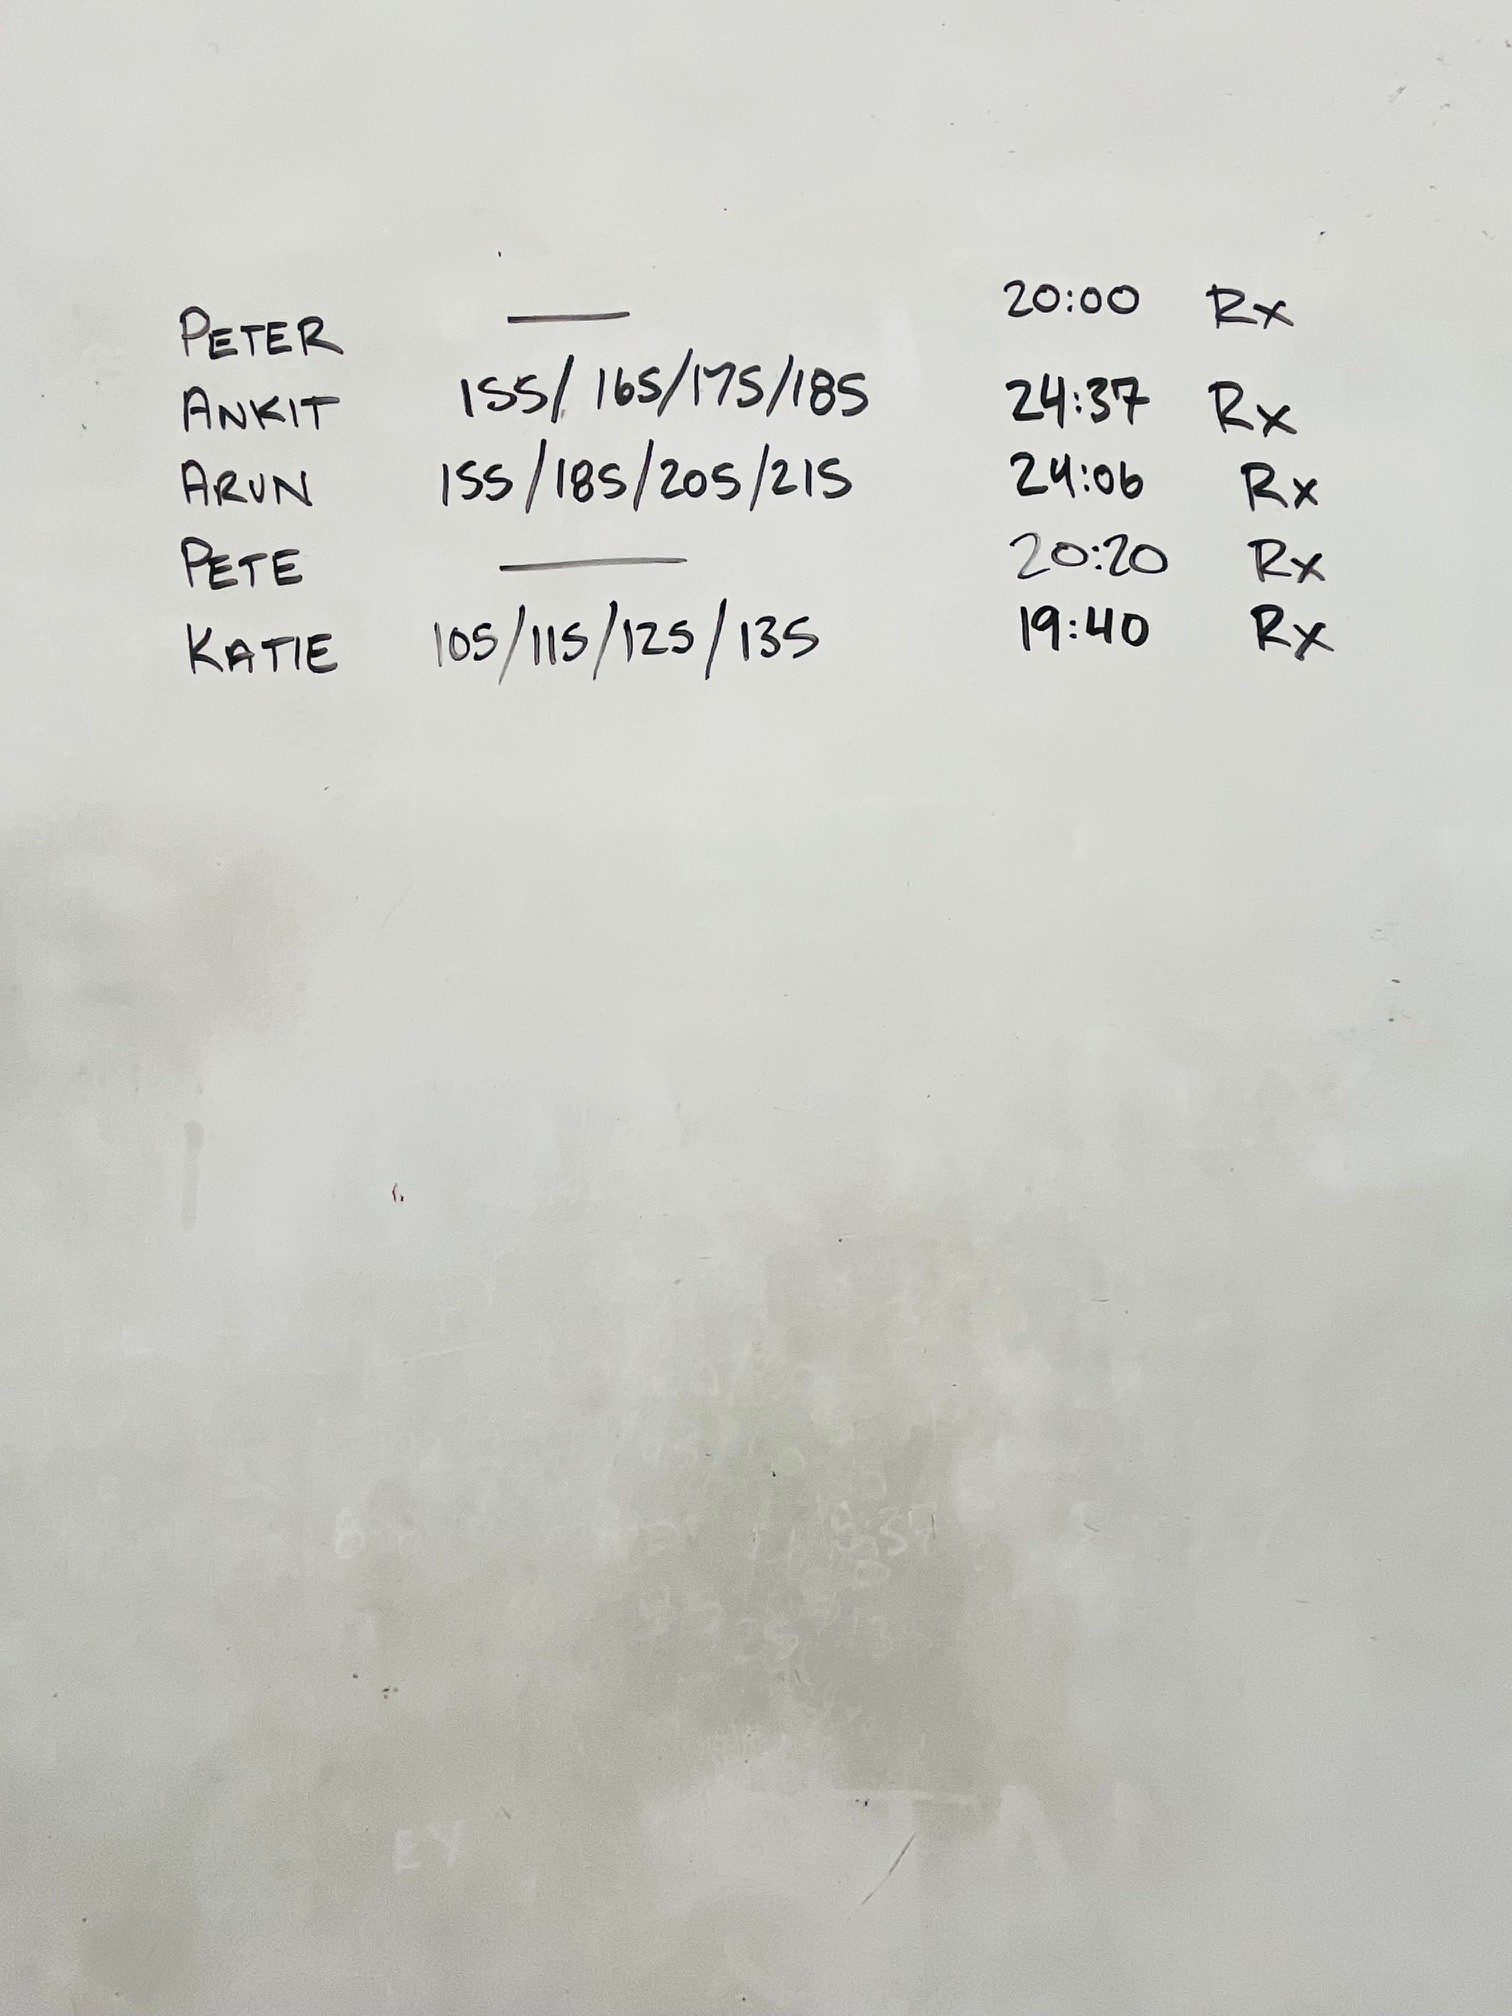 PETER — 20:00 Rx
ANKIT 155/165/175/185 24:37 Rx
ARUN 155/185/205/215 24:06 Rx
PETE — 20:20 Rx
KATIE 105/115/125/135 19:40 Rx
EY